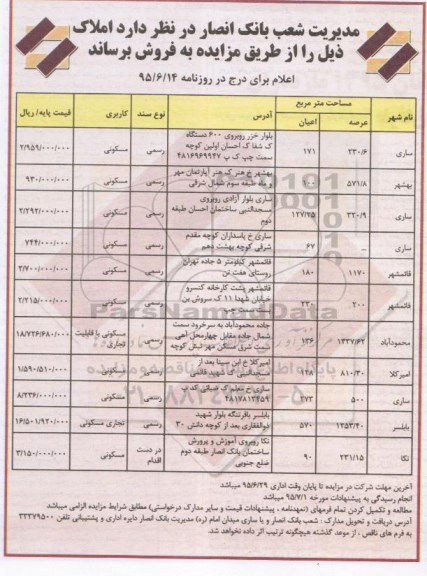 مدیریت شعب بانک انصار در نظر دارد املاک
ذیل را از طریق مزایده به فروش برساند
اعلام برای درج در روزنامه ۹۵/۶/۱۴
نام شهر مساحت متر مربع آدرس نوع سند کاربری قیمت پایه/ ریال
عرصه اعیان
ساری ۲۳۰/۶ ۱۷۱ بلوار خزر روبروی ۶۰۰ دستگاه رسمی مسکونی ۲/۹۵۹/۰۰۰/۰۰۰
ک شفا ک احسان اولین کوچه
سمت چپ ک پ ۴۸۱۶۹۶۹۹۴۷
بهشهر ۵۷۱/۸ ۱۰۰ بهشهر خ هنر ک هنر آپارتمان مهر رسمی مسکونی ۹۳۰/۰۰۰/۰۰۰
ماه طبقه سوم شمال شرقی
ساری ۳۲۰/۹ ۱۲۷/۲۵ ساری بلوار آزادی روبروی رسمی مسکونی ۲/۲۹۲/۰۰۰/۰۰۰
مسجدالنبی ساختمان احسان طبقه
دوم
ساری ۶۷ ساری خ پاسداران کوچه مقدم رسمی مسکونی ۷۴۴/۰۰۰/۰۰۰
شرقی کوچه بهشت دهم
قائمشهر ۱۱۷۰ ۱۸۰ قائمشهر کیلومتر ۵ جاده تهران رسمی مسکونی ۲/۷۰۰/۰۰۰/۰۰۰
روستای هفت تن
قائمشهر ۲۰۰ ۲۳۰ قائمشهر پشت کارخانه کنسرو رسمی مسکونی ۲/۲۱۵/۰۰۰/۰۰۰
خیابان شهدا ۱۱ ک سروش بن
بست سمت چپ
محمودآباد ۱۳۳۷/۶۲ ۱۳۶ جاده محمودآباد به سرخرود سمت رسمی مسکونی با قابلیت تجاری ۱۸/۷۲۶/۶۸۰/۰۰۰
شمال جاده مقابل چهارمحل آهی
سمت شرق مسکن مهر نبش کوچه
امیرکلا ۸۱۰/۳۰ ۱۴۸ امیرکلا خ ابن سینا بعد از رسمی مسکونی ۱/۵۹۰/۵۱۰/۰۰۰
مسجدالنبی ک شهید قائمی
ساری ۵۰۰ ۲۷۳ ساری خ معلم ک ضیائی کد پ رسمی مسکونی ۸/۳۳۶/۰۰۰/۰۰۰
۴۸۱۷۸۱۳۴۵۹
بابلسر ۱۲۵۳/۴۰ ۵۷۰ بابلسر باقرتنگه بلوار شهید رسمی تجاری مسکونی ۱۶/۵۰۱/۹۲۰/۰۰۰
ذوالفقاری بعد از کوچه دانش ۳۰
نکا ۲۳۱/۱۵ ۹۰ نکا روبروی آموزش و پرورش در دست اقدام مسکونی ۳/۱۵۰/۰۰۰/۰۰۰
ساختمان بانک انصار طبقه دوم
ضلع جنوبی
آخرین مهلت شرکت در مزایده تا پایان وقت اداری ۹۵/۶/۲۹ میباشد
انجام رسیدگی به پیشنهادات مورخه ۹۵/۷/۱ میباشد
مطالعه و تکمیل کردن تمام فرمهای (تعهدنامه ، پیشنهادات قیمت و سایر مدارک درخواستی) مطابق شرایط مزایده الزامی میباشد
آدرس دریافت و تحویل مدارک : شعب بانک انصار و یا ساری میدان امام (ره) مدیریت بانک انصار دایره اداری و پشتیبانی تلفن ۳۳۳۷۹۵۰۰
به فرم های ناقص ، از موعد گذشته هیچگونه ترتیب اثر داده نخواهد شد.
ParsNamadData